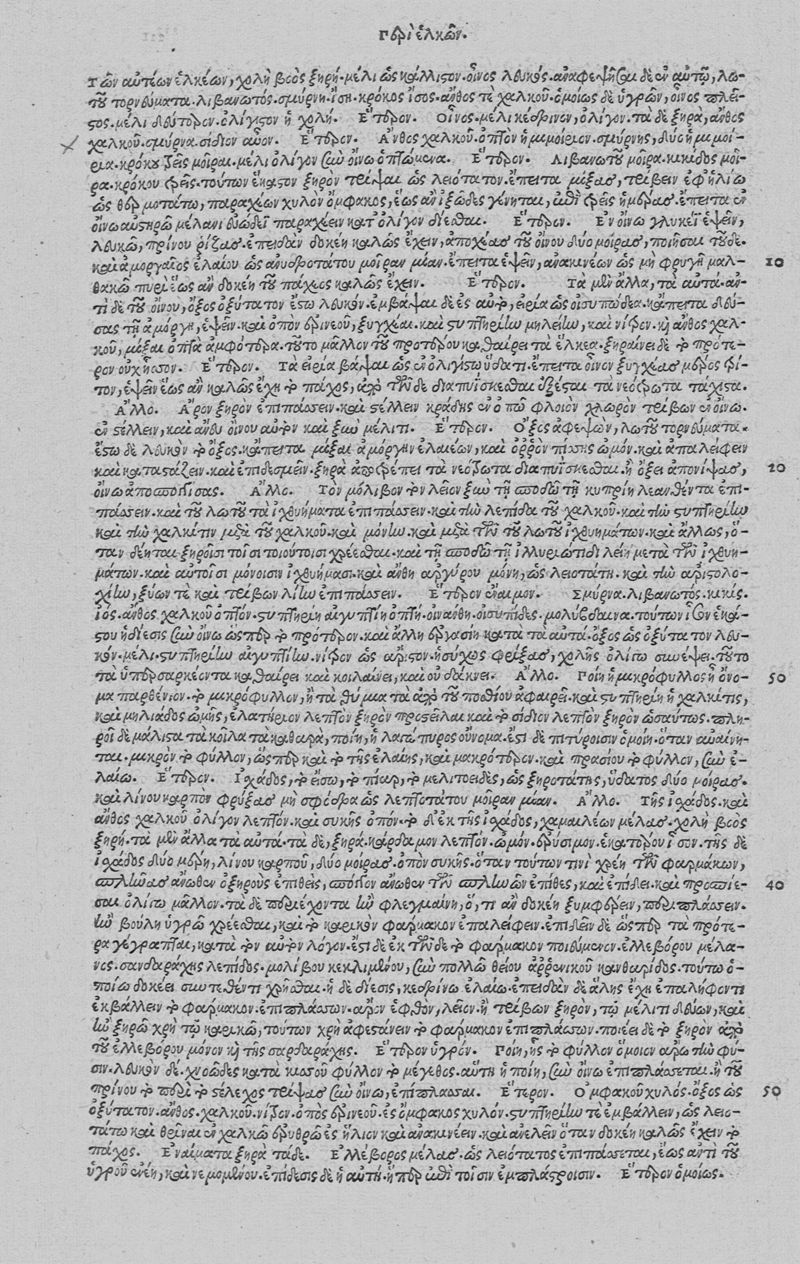 Περὶ ἑλκῶν.
τῶν αὐτέων ἑλκέων, χολὴ βοὸς ξηρὴ. μέλι ὡς κάλλιστον. οἶνος λευκὸς. ἀναφεψῆσαι δὲ ἐν αὐτῷ, λω-
τοῦ τορνεύματα. λιβανωτός. σμύρνη. ἴση. κρόκος ἴσος. ἄνθος τὲ χαλκοῦ. ὁμοίως δὲ ὑγρῶν, οἶνος πλεῖ-
στος. μέλι δεύτερον. ὀλίγιστον ἡ χολή. Ἕτερον. Οἶνος. μέλι κέδρινον, ὀλίγον. τὰ δὲ ξηρὰ, ἄνθος
χαλκοῦ. σμύρνα. σίδιον αὖον. Ἕτερον. Ἄνθος χαλκοῦ. ὀπτὸν ἡμιμοίριον. σμύρνης, δύο ἡμιμοί-
ρια. κρόκου τρεῖς μοῖραι. μέλι ὀλίγον σὺν οἴνῳ ἑψόμενα. Ἕτερον. Λιβανωτοῦ μοῖρα. κικίδος μοῖ-
ρα. κρόκου τρεῖς. τούτων ἕκαστον ξηρὸν τρίψαι ὡς λειότατον. ἔπειτα μίξας, τρίβειν ἐφ' ἡλίῳ
ὡς θερμοτάτῳ, παραχέων χυλὸν ὄμφακος, ἕως ἂν ἰξῶδες γένηται, ἐπὶ τρεῖς ἡμέρας. ἔπειτα ἐν
οἴνῳ αὐστηρῷ μέλανι εὐώδεϊ παραχέειν κατ' ὀλίγον διέσθαι. Ἕτερον. Ἐν οἴνῳ γλυκεῖ ἕψειν,
λευκῷ, πρίνου ῥίζας. ἐπειδὰν δοκέῃ καλῶς ἔχειν, ἀποχέας τοῦ οἴνου δύο μοίρας, ποιῆσαι τοῦδε.
καὶ ἀμόργης ἐλαίου ὡς ἀνυδροτάτου μοῖραν μίαν. ἔπειτα ἕψειν, ἀνακινέων ὡς μὴ φρυγῇ μαλ- 10
θακῷ πυρὶ, ἕως ἂν δοκέῃ τοῦ πάχεος καλῶς ἔχειν. Ἕτερον. Τὰ μὲν ἄλλα, τὰ αὐτά. ἀν-
τὶ δὲ τοῦ οἴνου, ὄξος ὀξύτατον ἔστω λευκόν. ἐμβάψαι δὲ ἐς αὐτὸ, εἴρια ὡς οἰσυπώδεα. κἄπειτα δεύ-
σας τῇ ἀμόργῃ, ἕψειν. καὶ ὀπὸν ἐρινεοῦ, ξυγχέαι. καὶ στυπτηρίην μηλείην, καὶ νίτρον. καὶ ἄνθος χαλ-
κοῦ, μίξαι ὀπτὰ ἀμφότερα. τοῦτο μᾶλλον τοῦ προτέρου καθαίρει τὰ ἕλκεα. ξηραίνει δὲ τὸ πρότε-
ρον οὐχ ἧσσον. Ἕτερον. Τὰ εἴρια βάψαι ὡς ἐν ὀλιγίστῳ ὕδατι. ἔπειτα οἶνον ξυγχέας μέρος τρί-
τον, ἕψειν ἕως ἂν καλῶς ἔχῃ τὸ πάχος, ἀπὸ τῶνδε διαπυΐσκεσθαι ἄρξεται τὰ νεότρωτα τάχιστα.
Ἄλλο. Ἄρον ξηρὸν ἐπιπάσσειν. καὶ στέλλειν κράδης ἐν ὀπῷ φλοιὸν χλωρὸν τρίβων ἐν οἴνῳ.
ἐν στέλλειν, καὶ ἄνευ οἴνου αὐτὸν καὶ ξὺν μέλιτι. Ἕτερον. Ὄξος ἀφεψῶν, λωτοῦ τορνεύματα.
ἔστω δὲ λευκὸν τὸ ὄξος. κἄπειτα μίξαι ἀμόργην ἐλαίων, καὶ ὀῤῥὸν πίσσης ὠμὸν. καὶ ἀπαλείφειν
καὶ καταστάζειν. καὶ ἐπιδεσμεῖν. ξηρὰ ἀποτρέπει τὰ νεότρωτα διαπυΐσκεσθαι. ἢ ὄξει ἀπονίψας, 20
οἴνῳ ἀποσπογγίσας. Ἄλλο. Τὸν μόλιβον τὸν λεῖον ξὺν τῇ σποδῷ τῇ κυπρίῃ λεανθέντα ἐπι-
πάσσειν. καὶ τοῦ λωτοῦ τὰ ἰχθυήματα ἐπιπάσσειν. καὶ τὴν λεπίδα τοῦ χαλκοῦ. καὶ τὴν στυπτηρίην
καὶ τὴν χαλκῖτιν μετὰ τοῦ χαλκοῦ. καὶ μόνην. καὶ μετὰ τῶν τοῦ λωτοῦ ἰχθυημάτων. καὶ ἄλλως, ὅ-
ταν δέηται ξηροῖσι τοῖσι τοιούτοισι χρέεσθαι. καὶ τῇ σποδῷ τῇ ἰλλυριώτιδι λείῃ μετὰ τῶν ἰχθυη-
μάτων. καὶ αὐτοῖσι μόνοισιν ἰχθυήμασι. καὶ ἄνθη ἀργύρου μόνη, ὡς λειοτάτη. καὶ τὴν ἀριστολο-
χίην, ξύων τὲ καὶ τρίβων λείην ἐπιπάσσειν. Ἕτερον ἔναιμον. Σμύρνα. λιβανωτὸς. κικίς.
ἰός. ἄνθος χαλκοῦ ὀπτὸν. στυπτηρίη αἰγυπτίη ὀπτή. οἰνάνθη. οἰσυπίδες. μολύβδαινα. τούτων ἴσον ἑκά-
στου ἡ δίεσις σὺν οἴνῳ ὥσπερ τὸ πρότερον. καὶ ἄλλη ἐργασίη κατὰ τὰ αὐτά. ὄξος ὡς ὀξύτατον λευ-
κόν. μέλι. στυπτηρίην αἰγυπτίην. νίτρον ὡς ἄριστον. ἡσύχως φρύξας, χολῆς ὀλίγῳ συνέψει. τοῦτο
τὰ ὑπερσαρκέοντα καθαίρει καὶ κοιλαίνει, καὶ οὐ δάκνει. Ἄλλο. Ποίη ἡ μικρόφυλλος ᾗ ὄνο- 30
μα παρθένιον. τὸ μικρόφυλλον, ᾗ τὰ θύμια τὰ ἀπὸ τοῦ ποσθίου ἀφαιρεῖ. καὶ στυπτηρίη ἡ χαλκῖτις,
καὶ μηλιάδος ὠμῆς, ἐλατήριον λεπτὸν ξηρὸν προσεῖλαι καὶ τὸ σίδιον λεπτὸν ξηρὸν ὡσαύτως. πλη-
ροῖ δὲ μάλιστα τὰ κοῖλα τὰ καθαρὰ, ποίη, ᾗ λαγώπυρος οὔνομα. ἔστι δὲ πιτύροισιν ὁμοίη. ὅταν αὐαίνη-
ται. μικρὸν τὸ φύλλον, ὥσπερ καὶ τὸ τῆς ἐλαίης, καὶ μακρότερον. καὶ πρασίου τὸ φύλλον, σὺν ἐ-
λαίῳ. Ἕτερον. Ἰσχάδος, τὸ εἴσω, τὸ πῖαρ, τὸ μελιτοειδὲς, ὡς ξηροτάτης, ὕδατος δύο μοίρας.
καὶ λίνου καρπὸν φρύξας μὴ σφόδρα ὡς λεπτοτάτου μοῖραν μίαν. Ἄλλο. Τῆς ἰσχάδος. καὶ
ἄνθος χαλκοῦ ὀλίγον λεπτὸν. καὶ συκῆς ὀπόν. τὸ δ' ἐκ τῆς ἰσχάδος, χαμαιλέων μέλας. χολὴ βοὸς
ξηρή. τὰ μὲν ἄλλα τὰ αὐτά. τὰ δὲ, ξηρὰ. κάρδαμον λεπτὸν. ὠμόν. ἐρύσιμον. ἑκατέρου ἴσον. τῆς δὲ
ἰσχάδος δύο μέρη, λίνου καρποῦ, δύο μοίρας. ὀπὸν συκῆς. ὅταν τούτων τινὶ χρέῃ τῶν φαρμάκων,
σπλῆνας ἄνωθεν ὀξηροὺς ἐπιθεὶς, σπόγγον ἄνωθεν τῶν σπληνῶν ἐπίθες, καὶ ἐπίδει. καὶ προσπιέ- 40
σαι ὀλίγῳ μᾶλλον. τὰ δὲ περιέχοντα ἢν φλεγμαίνῃ, ὅ, τι ἂν δοκέῃ ξυμφέρειν, περιπλάσσειν.
ἢν βούλῃ ὑγρῷ χρέεσθαι, καὶ τὸ καρικὸν φάρμακον ἐπαλείφειν. ἐπιδεῖν δὲ ὥσπερ τὰ πρότε-
ρα γέγραπται, κατὰ τὸν αὐτὸν λόγον. ἔστι δὲ ἐκ τῶνδε τὸ φάρμακον ποιεύμενον. ἐλλεβόρου μέλα-
νος. σανδαράχης λεπίδος. μολίβου κεκλυμένου, σὺν πολλῷ θείου ἀρρενικοῦ κανθαρίδος. τούτῳ ὁ-
ποίῳ δοκέει συντεθέντι χρῆσθαι. ἡ δὲ δίεσις, κεδρίνῳ ἐλαίῳ. ἐπειδὰν δὲ ἅλης ἔχῃ ἐπαλείφοντι
ἐκβάλλειν τὸ φάρμακον. ἐπιπλάσσων. ἄρον ἑφθὸν, λεῖον. ἢ τρίβων ξηρὸν, τῷ μέλιτι δεύων, καὶ
ἢν ξηρῷ χρῇ τῷ καρικῷ, τούτων χρὴ ἀφιστάνειν τὸ φάρμακον ἐπιπλάσσων. ποιέει δὲ τὸ ξηρὸν ἀπὸ
τοῦ ἐλλεβόρου μόνον καὶ τῆς σανδαράχης. Ἕτερον ὑγρόν. Ποίη, ἧς τὸ φύλλον ὅμοιον ἄρῳ τὴν φύ-
σιν. λευκὸν δὲ. χνοῶδες κατὰ κισσοῦ φύλλον τὸ μέγεθος. αὕτη ἡ ποίη, σὺν οἴνῳ ἐπιπλάσσεται. ἢ τοῦ
πρίνου τὸ περὶ τὸ στέλεχος τρίψας σὺν οἴνῳ, ἐπιπλάσσαι. Ἕτερον. Ὄμφακος χυλός. ὄξος ὡς 50
ὀξύτατον. ἄνθος. χαλκοῦ. νίτρον. ὀπὸς ἐρινεοῦ. ἐς ὄμφακος χυλὸν. στυπτηρίην τὲ ἐμβάλλειν, ὡς λειο-
τάτῳ καὶ θεῖναι ἐν χαλκῷ ἐρυθρῷ ἐς ἥλιον καὶ ἀνακινέειν. καὶ ἀνελεῖν ὅταν δοκέῃ καλῶς ἔχειν τὸ
πάχος. Ἔναιμα ξηρὰ τάδε. Ἑλλέβορος μέλας. ὡς λειότατος ἐπιπάσσεται, ἕως ἀντὶ τοῦ
ὑγροῦ ἐνέῃ, καὶ νεμομένου. ἐπίδεσις δὲ ἡ αὐτὴ. ἥπερ ἐπὶ τοῖσιν ἐμπλάστροισιν. Ἕτερον ὁμοίως.